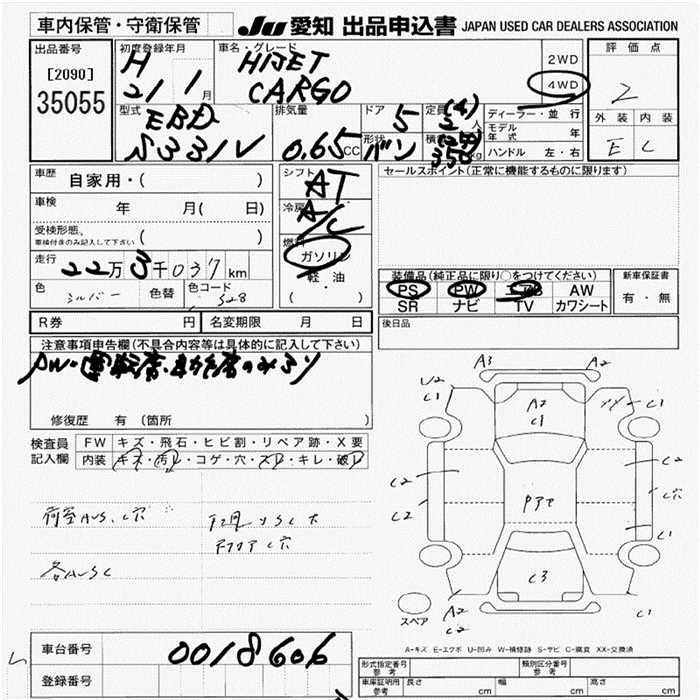 車内保管・守衛保管 JU 愛知 出品申込書 JAPAN USED CAR DEALERS ASSOCIATION
出品番号 初度登録年月 車名・グレード 2WD 評価点
[2090] H HIJET 4WD
35055 21 1月 CARGO 2
型式 排気量 ドア 5 定員 (4) 2人 ディーラー・並行 外装 内装
EBD モデル年式 年 E C
S331V 0.65CC 形状 バン 積載 350kg ハンドル 左・右
車歴 自家用・( ) シフト AT セールスポイント(正常に機能するものに限ります)
車検 年 月( 日) 冷房 A/C
受検形態、車検付きのみ記入して下さい ( ) 燃料 ガソリン
走行 22万3千037km 軽・油
色 シルバー 色替 色コード S28 ( )
装備品(純正品に限り○をつけてください) 新車保証書
PS PW AW 有・無
SR ナビ TV カワシート
R券 円 名変期限 月 日 後日品
注意事項申告欄(不具合内容等は具体的に記入して下さい)
PW・運転席・助手席のみあり
修復歴 有 (箇所 )
検査員記入欄 FW キズ・飛石・ヒビ割・リペア跡・X要
内装 キズ・汚レ・コゲ・穴・スレ・キレ・破レ
荷室AUS、C穴
各AUSC
A3
U2 C1
A2 C1
C1
C2 C2
C2 C穴
C1
C3
A2 C2
C1
スペア
A-キズ E-エクボ U-凹み W-補修跡 S-サビ C-腐食 XX-交換済
車台番号 0018606
登録番号
形式指定番号 参考 類別区分番号 参考
車庫証明用 参考 長さ cm 幅 cm 高さ cm